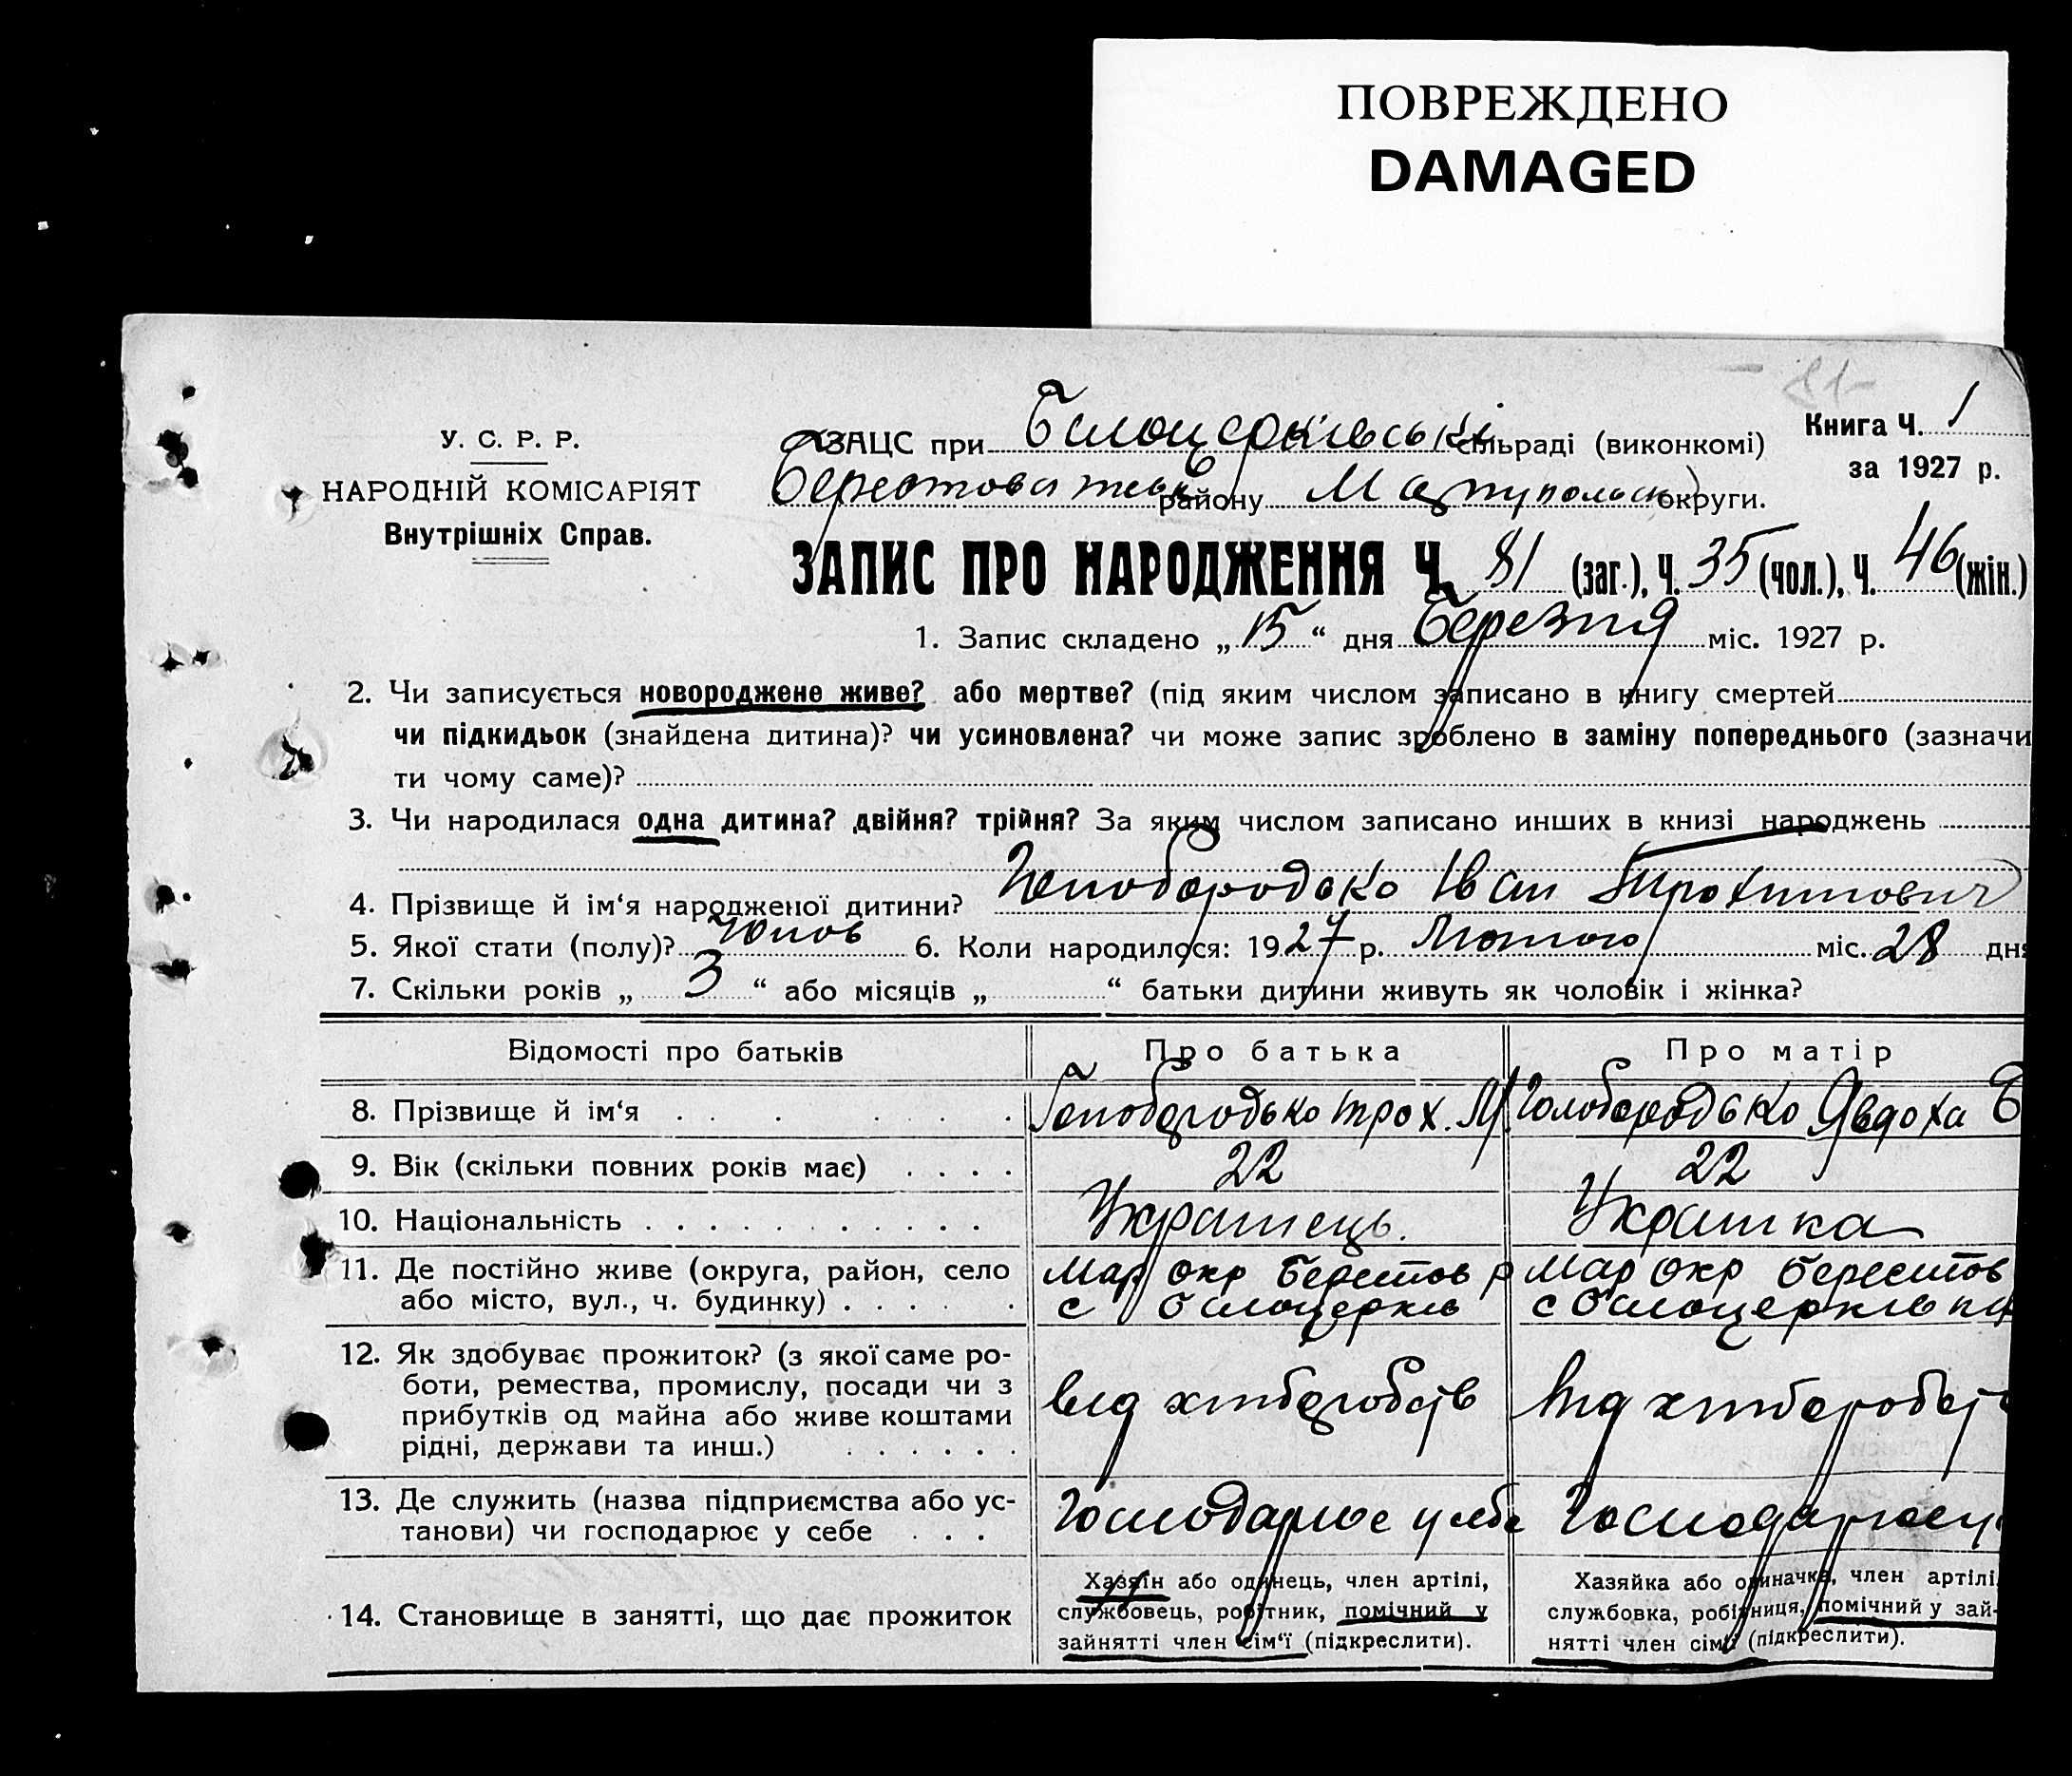 ПОВРЕЖДЕНО
DAMAGED
81
У. С. Р. Р.
НАРОДНІЙ КОМІСАРІЯТ
Внутрішніх Справ.
ЗАЦС при Білоцерківській сільраді (виконкомі)
Берестоватськ району Маріупольськ округи.
Книга Ч. 1
за 1927 р.
ЗАПИС ПРО НАРОДЖЕННЯ Ч. 81 (заг.), Ч. 35 (чол.), Ч. 46 (жін.)
1. Запис складено „15“ дня Березня міс. 1927 р.
2. Чи записується новороджене живе? або мертве? (під яким числом записано в книгу смертей
чи підкидьок (знайдена дитина)? чи усиновлена? чи може запис зроблено в заміну попереднього (зазначи
ти чому саме)?
3. Чи народилася одна дитина? двійня? трійня? За яким числом записано инших в книзі народжень
4. Прізвище й ім‘я народженої дитини? Голобородько Іван Трохимович
5. Якої стати (полу)? Чолов 6. Коли народилося: 1927 р. Лютого міс. 28 дня
7. Скільки років „3“ або місяців „ “ батьки дитини живуть як чоловік і жінка?
Відомості про батьків Про батька Про матір
8. Прізвище й ім‘я . . . . . Голобородько Трох. Голобородько Явдоха
9. Вік (скільки повних років має) . . . . 22 22
10. Національність . . . . . . . . . . . Українець. Українка
11. Де постійно живе (округа, район, село Мар окр Берестов р Мар окр Берестов
або місто, вул., ч. будинку) . . . . . с Білоцерків с Білоцерків
12. Як здобуває прожиток? (з якої саме ро-
боти, ремества, промислу, посади чи з
прибутків од майна або живе коштами від хліборобств від хліборобст
рідні, держави та инш.) . . . . . .
13. Де служить (назва підприємства або ус- Господарює у себе Господарює у
танови) чи господарює у себе . . .
Хазяїн або одинець, член артілі, Хазяйка або одиначка, член артілі
14. Становище в занятті, що дає прожиток службовець, робітник, помічний у службовка, робітниця, помічний у зай-
зайнятті член сім‘ї (підкреслити). нятті член сімї (підкреслити).